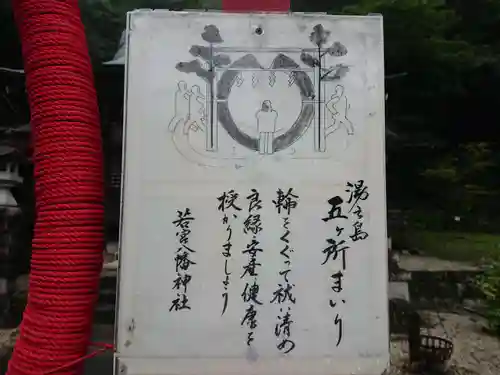 湯之島
五ヶ所まいり
輪をくぐって祓い清め
良縁安産健康を
授かりましょう
若宮八幡神社